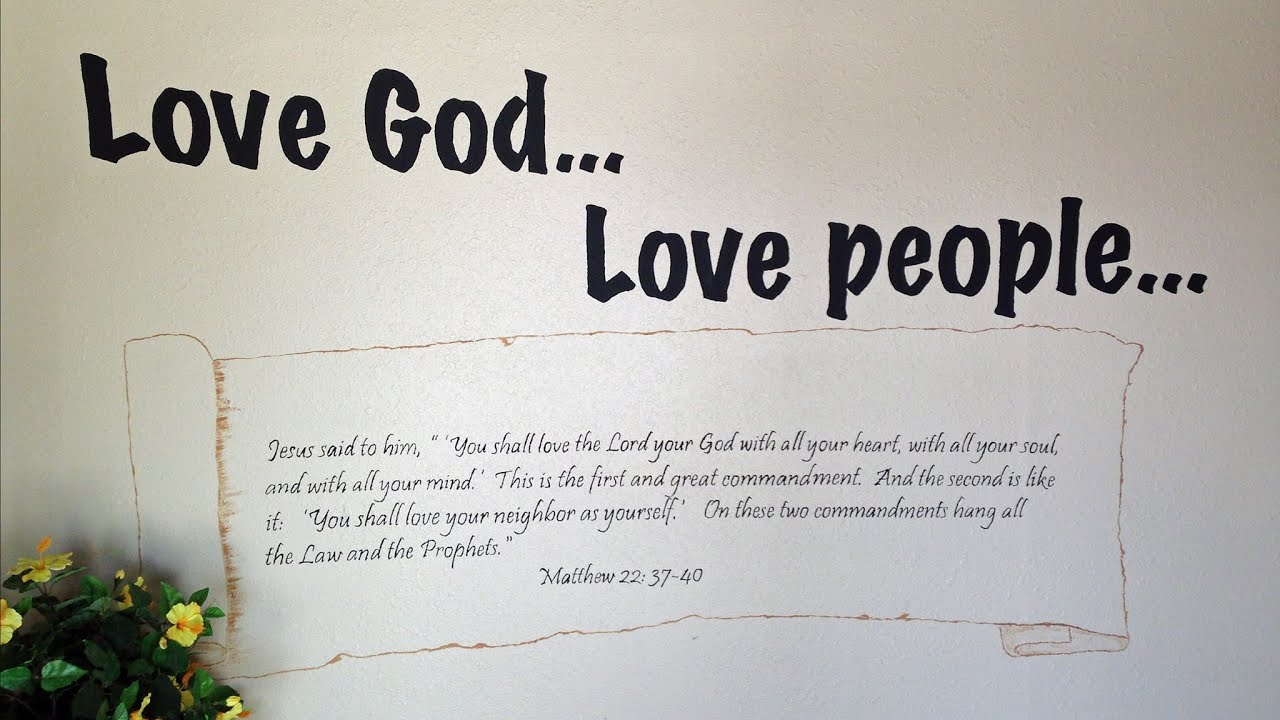 Love God...
Love people...
Jesus said to him, " 'You shall love the Lord your God with all your heart, with all your soul,
and with all your mind.' This is the first and great commandment. And the second is like
it: 'You shall love your neighbor as yourself.' On these two commandments hang all
the Law and the Prophets."
Matthew 22: 37-40